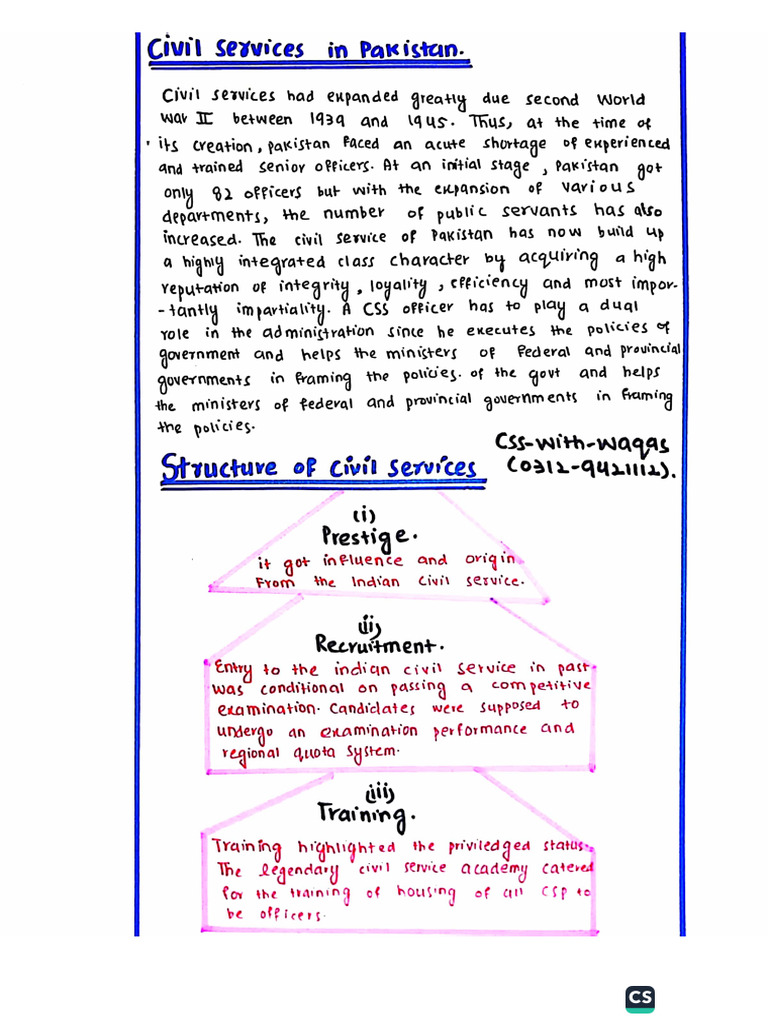 Civil Services in Pakistan.
Civil services had expanded greatly due second World
War II between 1939 and 1945. Thus, at the time of
its creation, pakistan faced an acute shortage of experienced
and trained senior officers. At an initial stage, Pakistan got
only 82 officers but with the expansion of various
departments, the number of public servants has also
increased. The civil service of Pakistan has now build up
a highly integrated class character by acquiring a high
reputation of integrity, loyality, efficiency and most impor-
-tantly impartiality. A CSS officer has to play a dual
role in the administration since he executes the policies of
government and helps the ministers of federal and provincial
governments in framing the policies. of the govt and helps
the ministers of federal and provincial governments in framing
the policies.
CSS-with-waqas
(0312-9421112).
Structure of Civil Services
(i)
Prestige.
it got influence and origin
From the Indian Civil service.
(ii)
Recruitment.
Entry to the indian civil service in past
was conditional on passing a competitive
examination. Candidates were supposed to
undergo an examination performance and
regional quota system.
(iii)
Training.
Training highlighted the priviledged status.
The legendary civil service academy catered
for the training of housing of all CSP to
be officers.
CS